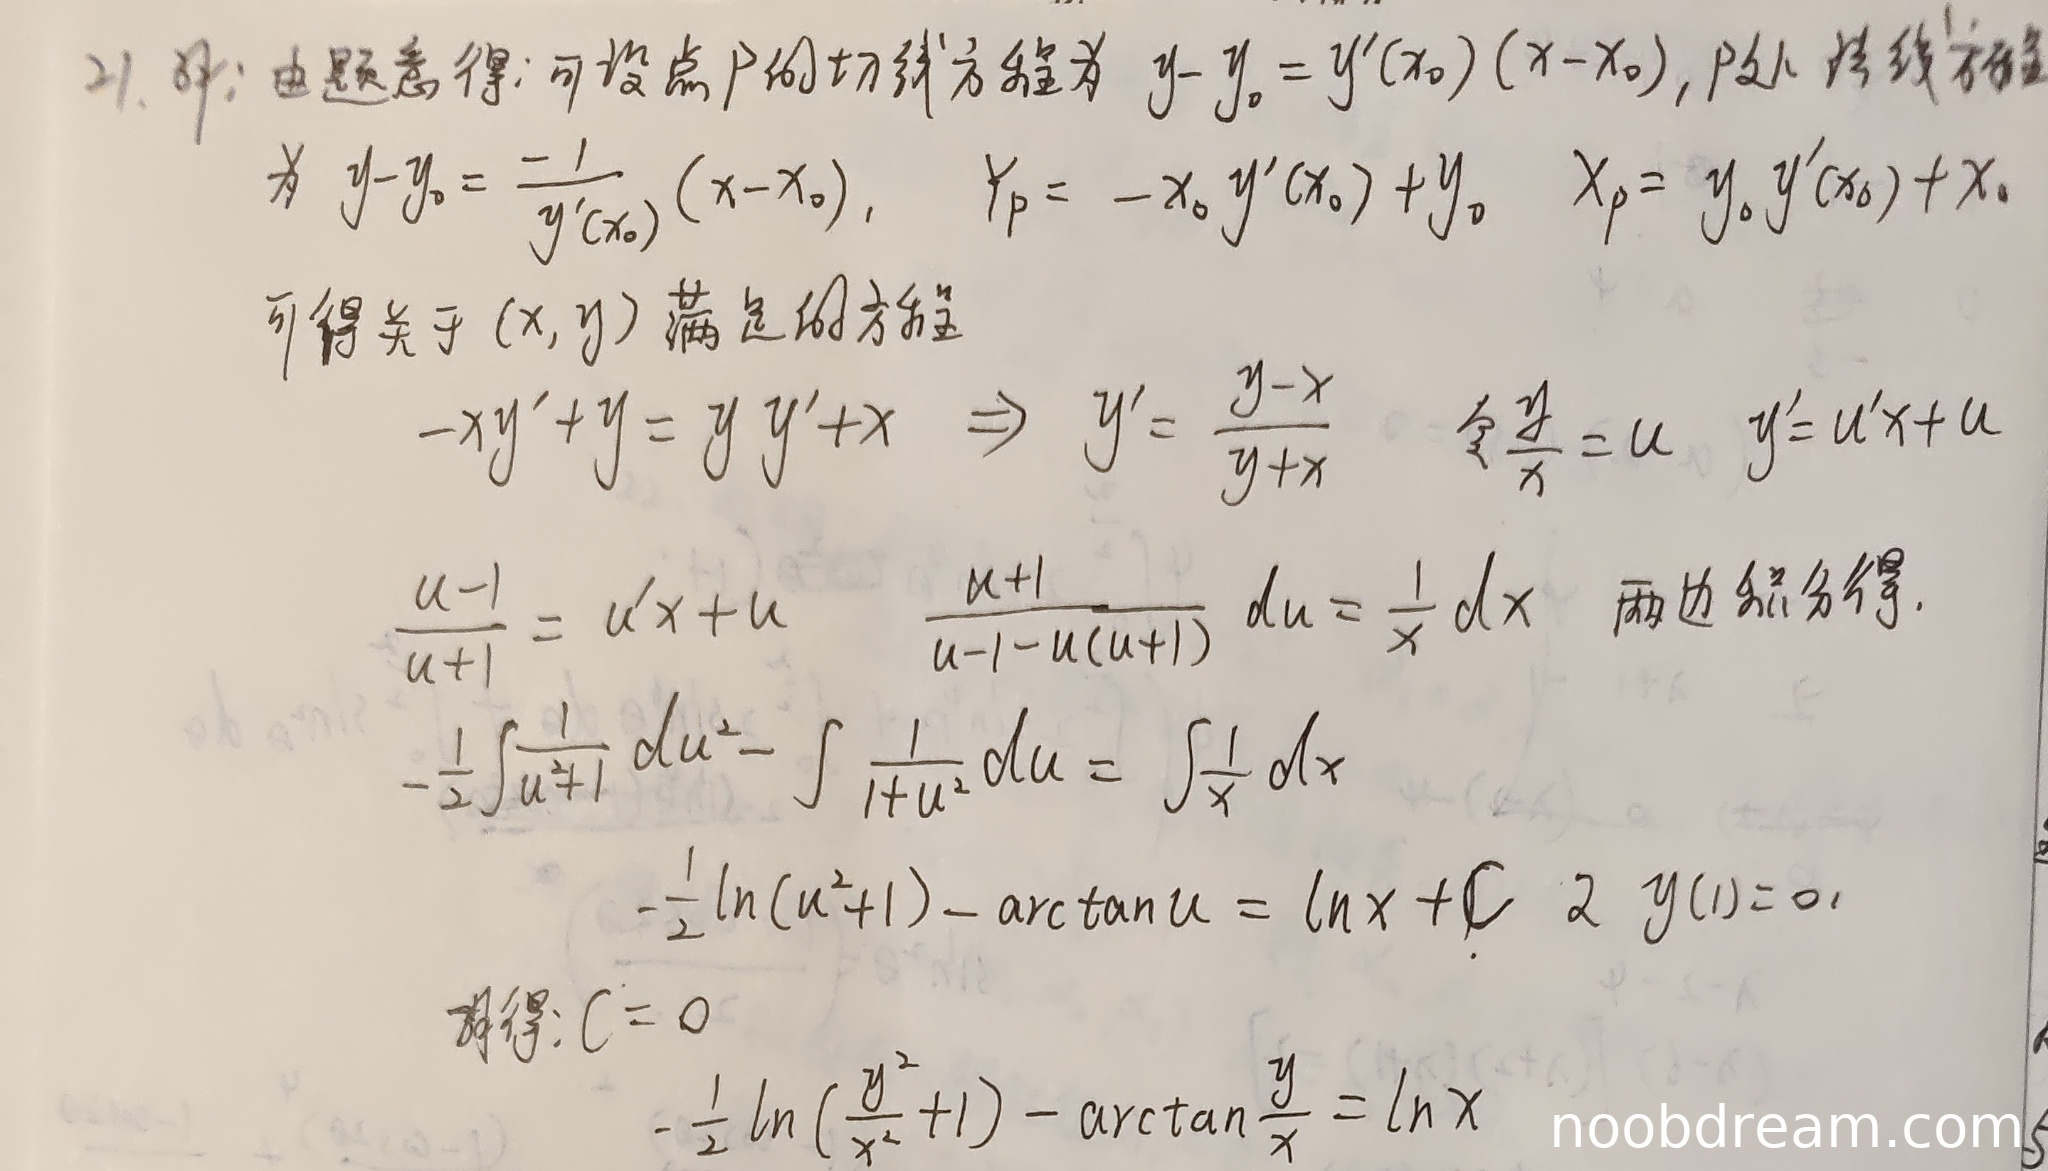 21. 解: 由题意得: 可设点P的切线方程为 y-y₀=y′(x₀)(x-x₀), P处法线方程
为 y-y₀=\frac{-1}{y′(x₀)}(x-x₀), Yₚ=-x₀y′(x₀)+y₀ Xₚ=y₀y′(x₀)+x₀
可得关于(x,y)满足的方程
-xy′+y=yy′+x ⇒ y′=\frac{y-x}{y+x} 令\frac{y}{x}=u y′=u′x+u
\frac{u-1}{u+1}=u′x+u \frac{u+1}{u-1-u(u+1)}du=\frac{1}{x}dx 两边积分得.
-\frac{1}{2}∫\frac{1}{u²+1}du²-∫\frac{1}{1+u²}du=∫\frac{1}{x}dx
-\frac{1}{2}ln(u²+1)-arctanu=lnx+C 又 y(1)=0.
解得: C=0
-\frac{1}{2}ln(\frac{y²}{x²}+1)-arctan\frac{y}{x}=lnx
noobdream.com